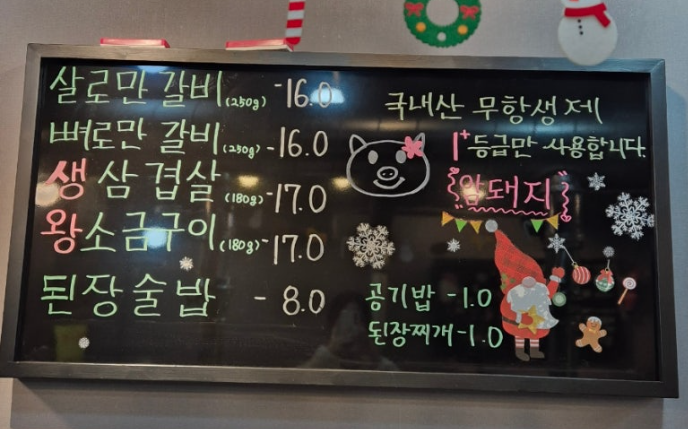 살로만 갈비(250g) -16.0
뼈로만 갈비(250g) -16.0
생 삼겹살(180g) -17.0
왕소금구이(180g) -17.0
된장술밥 - 8.0
국내산 무항생제
1+등급만 사용합니다.
"암돼지"
공기밥 -1.0
된장찌개 -1.0